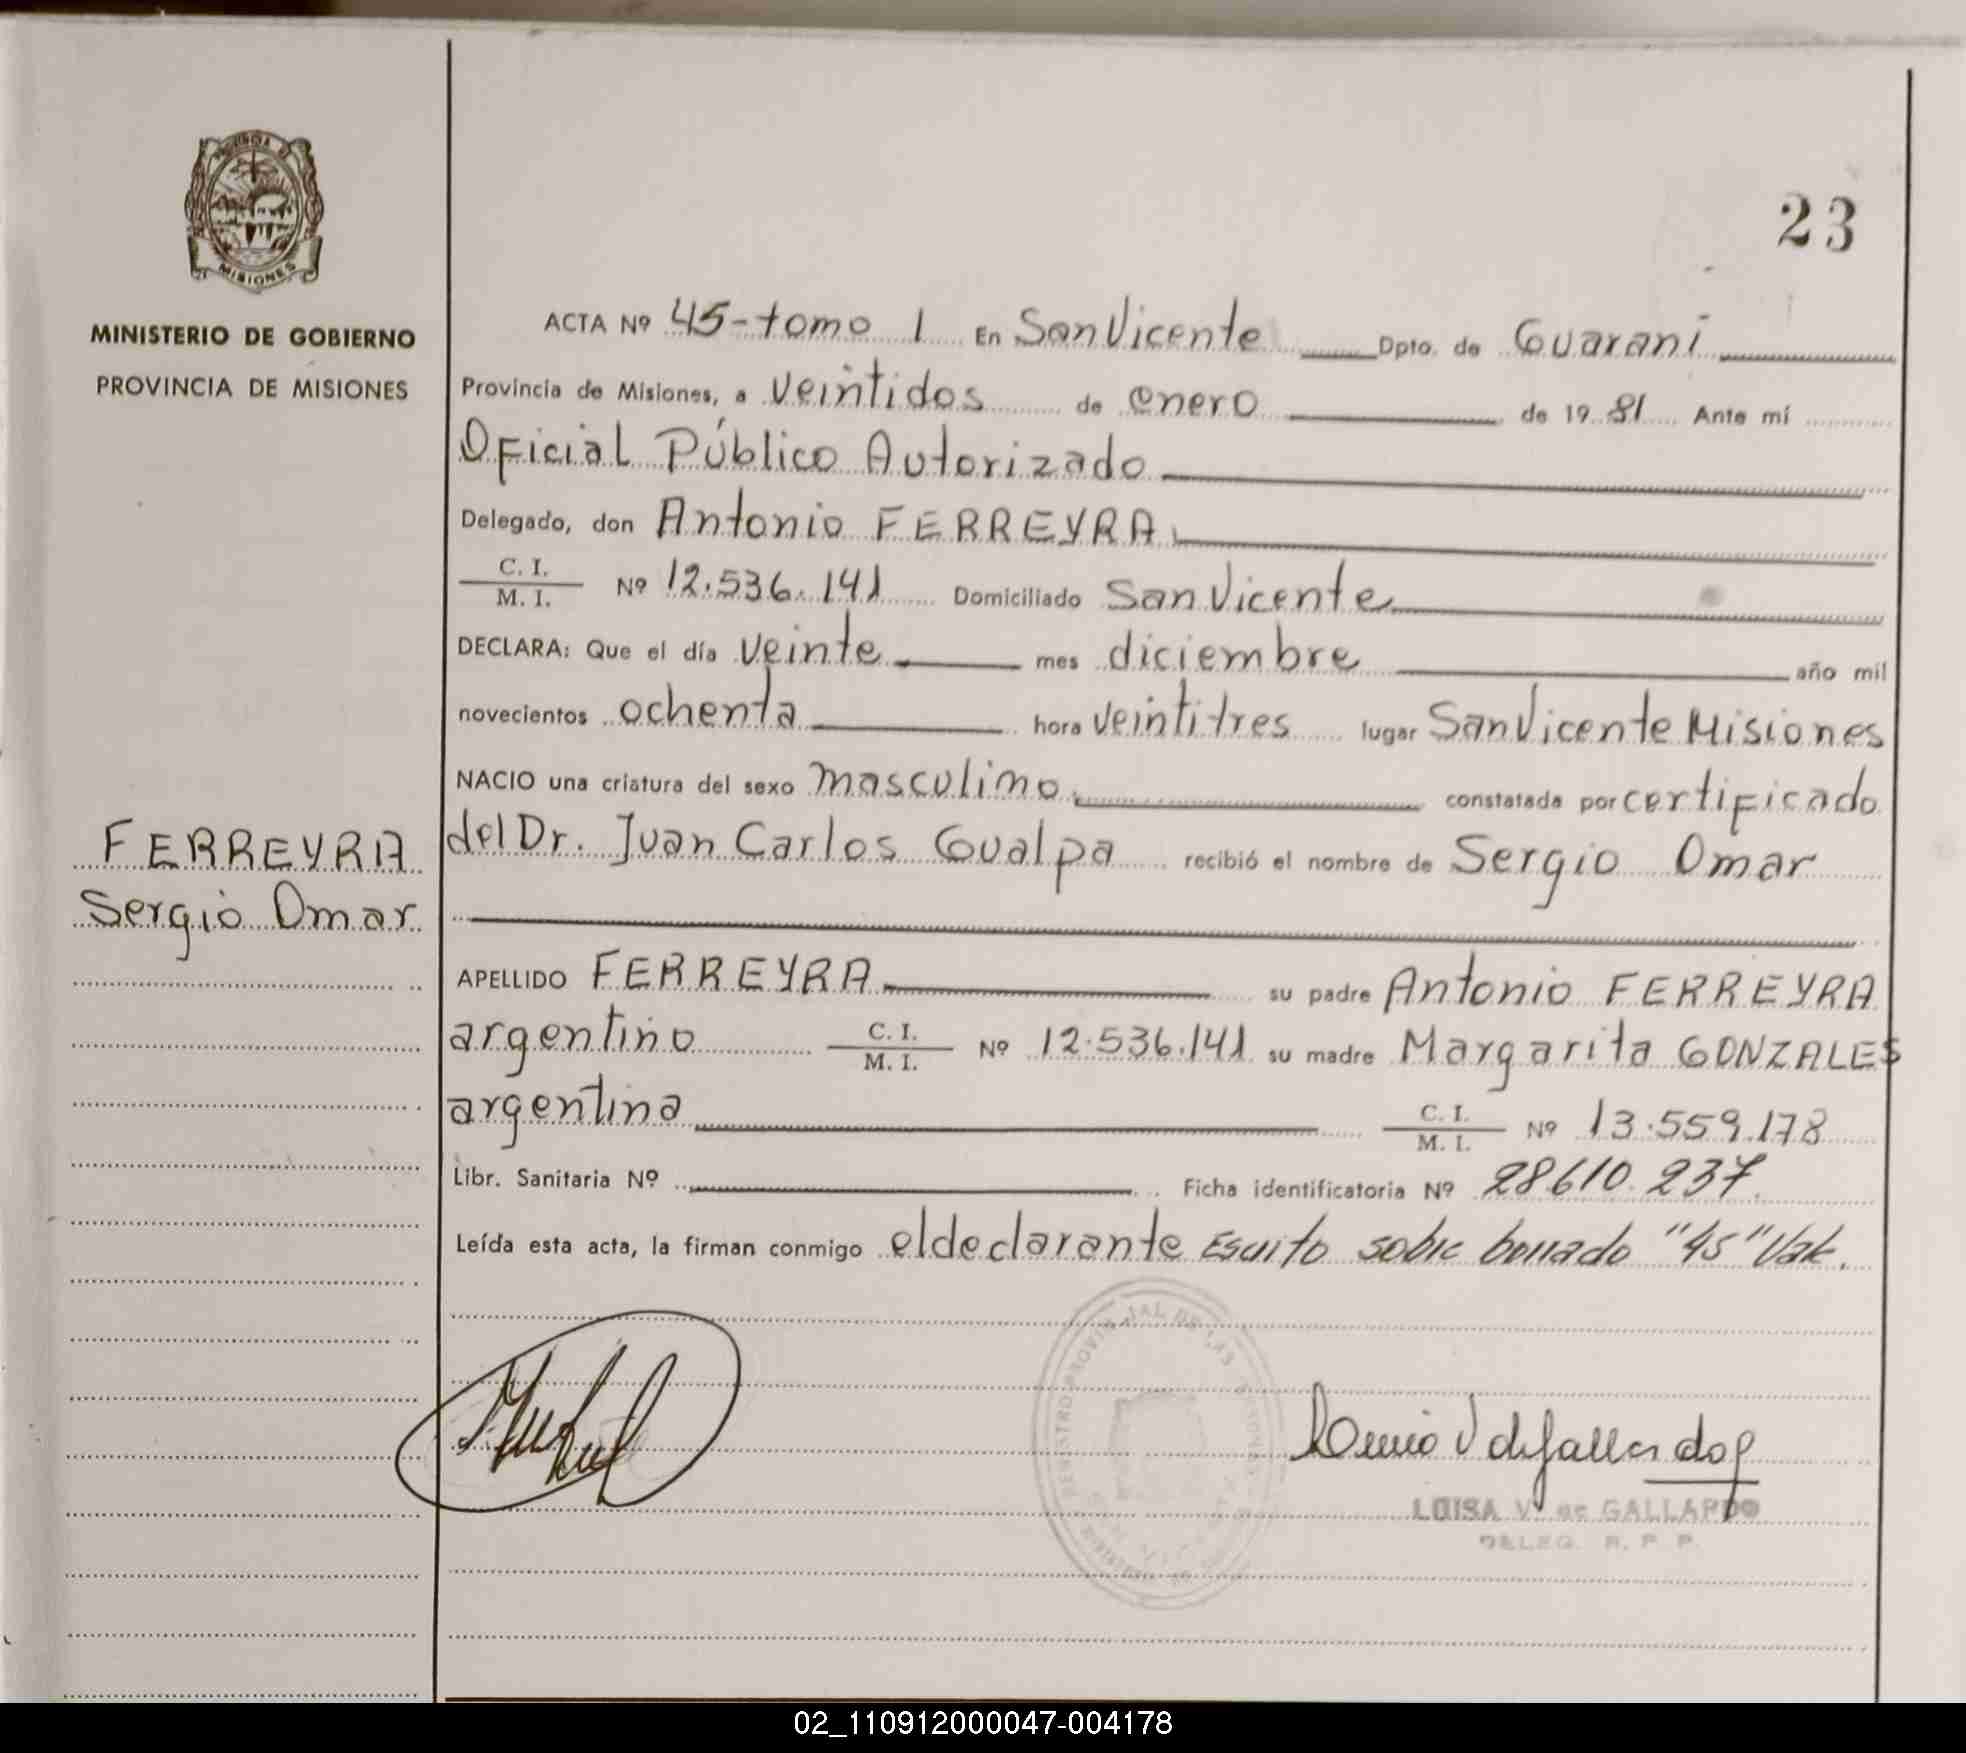 PROVINCIA DE
MISIONES
MINISTERIO DE GOBIERNO
PROVINCIA DE MISIONES
23
ACTA Nº 45-tomo 1 En San Vicente Dpto. de Guarani
Provincia de Misiones, a veintidos de enero de 1981 Ante mí
Oficial Público Autorizado
Delegado, don Antonio FERREYRA
C. I.
M. I. Nº 12.536.141 Domiciliado San Vicente
DECLARA: Que el día veinte mes diciembre año mil
novecientos ochenta hora veintitres lugar San Vicente Misiones
NACIO una criatura del sexo masculino constatada por certificado
del Dr. Juan Carlos Gualpa recibió el nombre de Sergio Omar
FERREYRA
Sergio Omar
APELLIDO FERREYRA su padre Antonio FERREYRA
argentino C. I.
M. I. Nº 12.536.141 su madre Margarita GONZALES
argentina C. I.
M. I. Nº 13.559.178
Libr. Sanitaria Nº Ficha identificatoria Nº 28610.237
Leída esta acta, la firman conmigo el declarante Escrito sobre borrado "45" Vale.
REGISTRO PROVINCIAL DE LAS PERSONAS
LUISA V. de GALLARDO
DELEG. R. P. P.
02_110912000047-004178